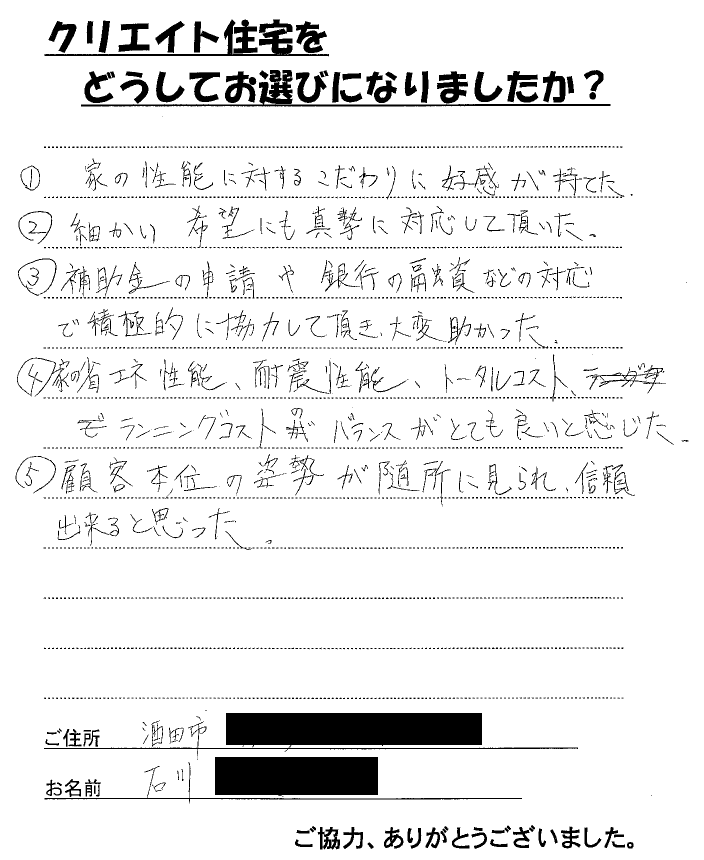 クリエイト住宅を
どうしてお選びになりましたか？
① 家の性能に対するこだわりに好感が持てた.
② 細かい希望にも真摯に対応して頂いた。
③ 補助金の申請や銀行の融資などの対応
で積極的に協力して頂き、大変助かった.
④ 家の省エネ性能、耐震性能、トータルコスト、
ランニングコストのバランスがとても良いと感じた。
⑤ 顧客本位の姿勢が随所に見られ、信頼
出来ると思った。
ご住所 酒田市
お名前 石川
ご協力、ありがとうございました。